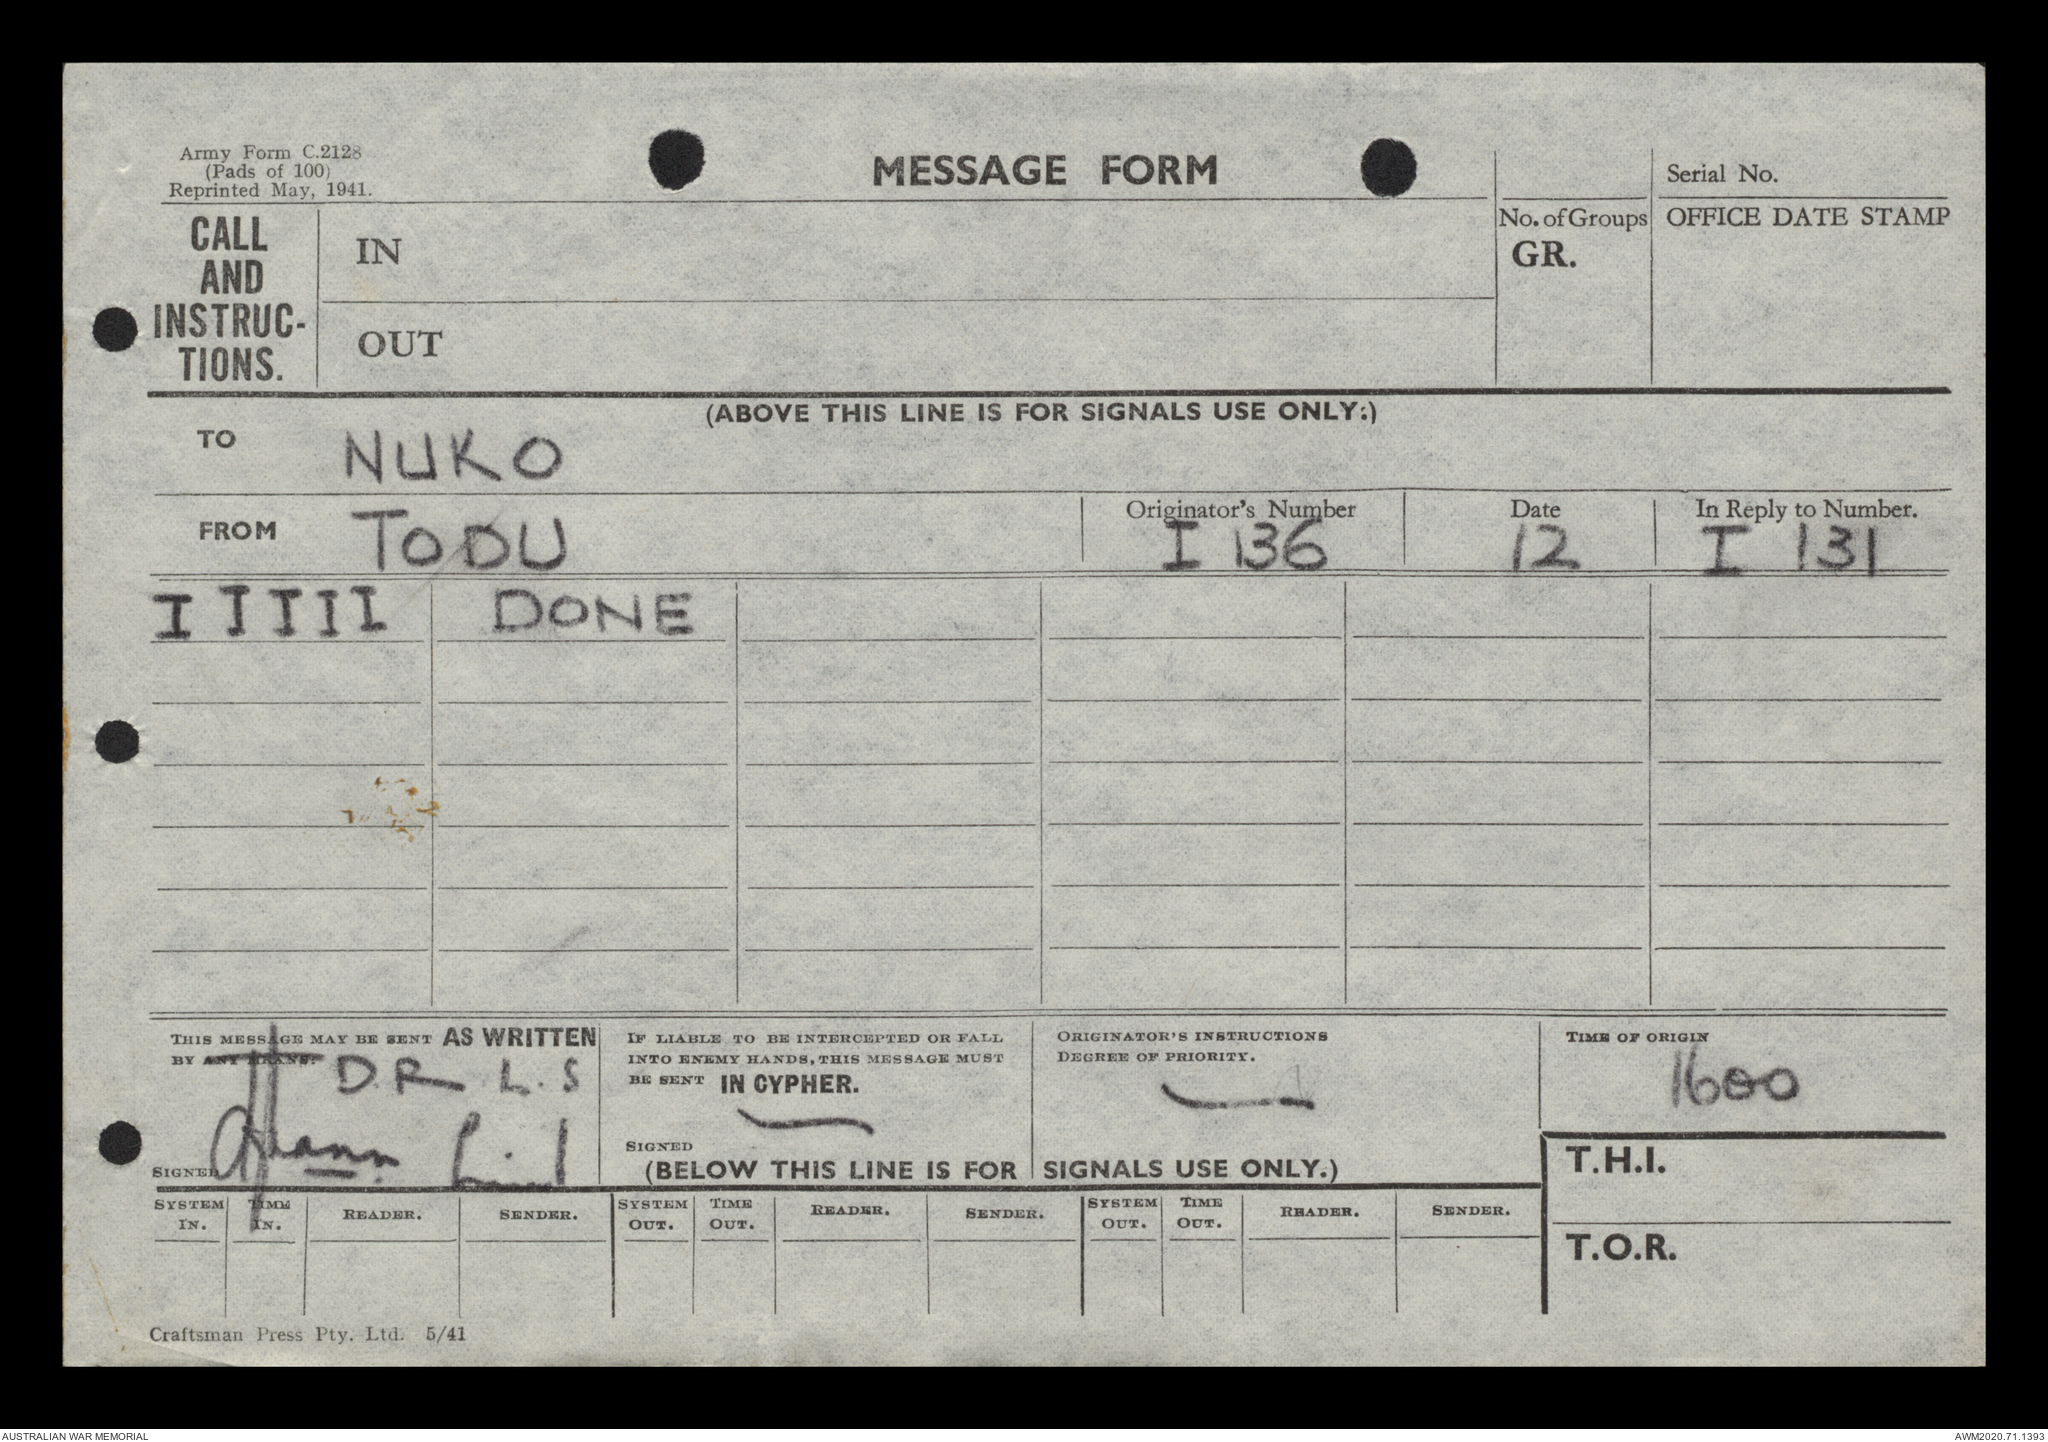 Army Form C.2128
(Pads of 100)
Reprinted May, 1941.
MESSAGE FORM
Serial No.
CALL
AND
INSTRUC-
TIONS.
IN
OUT
No. of Groups
GR.
OFFICE DATE STAMP
(ABOVE THIS LINE IS FOR SIGNALS USE ONLY:)
TO NUKO
FROM TODU
Originator's Number
I 136
Date
12
In Reply to Number.
I 131
I I I I I DONE
THIS MESSAGE MAY BE SENT AS WRITTEN
BY ANY MEANS. D.R. L.S
SIGNED
IF LIABLE TO BE INTERCEPTED OR FALL
INTO ENEMY HANDS, THIS MESSAGE MUST
BE SENT IN CYPHER.
SIGNED
ORIGINATOR'S INSTRUCTIONS
DEGREE OF PRIORITY.
TIME OF ORIGIN
1600
(BELOW THIS LINE IS FOR SIGNALS USE ONLY.)
T.H.I.
T.O.R.
SYSTEM IN. TIME IN. READER. SENDER. SYSTEM OUT. TIME OUT. READER. SENDER. SYSTEM OUT. TIME OUT. READER. SENDER.
Craftsman Press Pty. Ltd. 5/41
AUSTRALIAN WAR MEMORIAL
AWM2020.71.1393